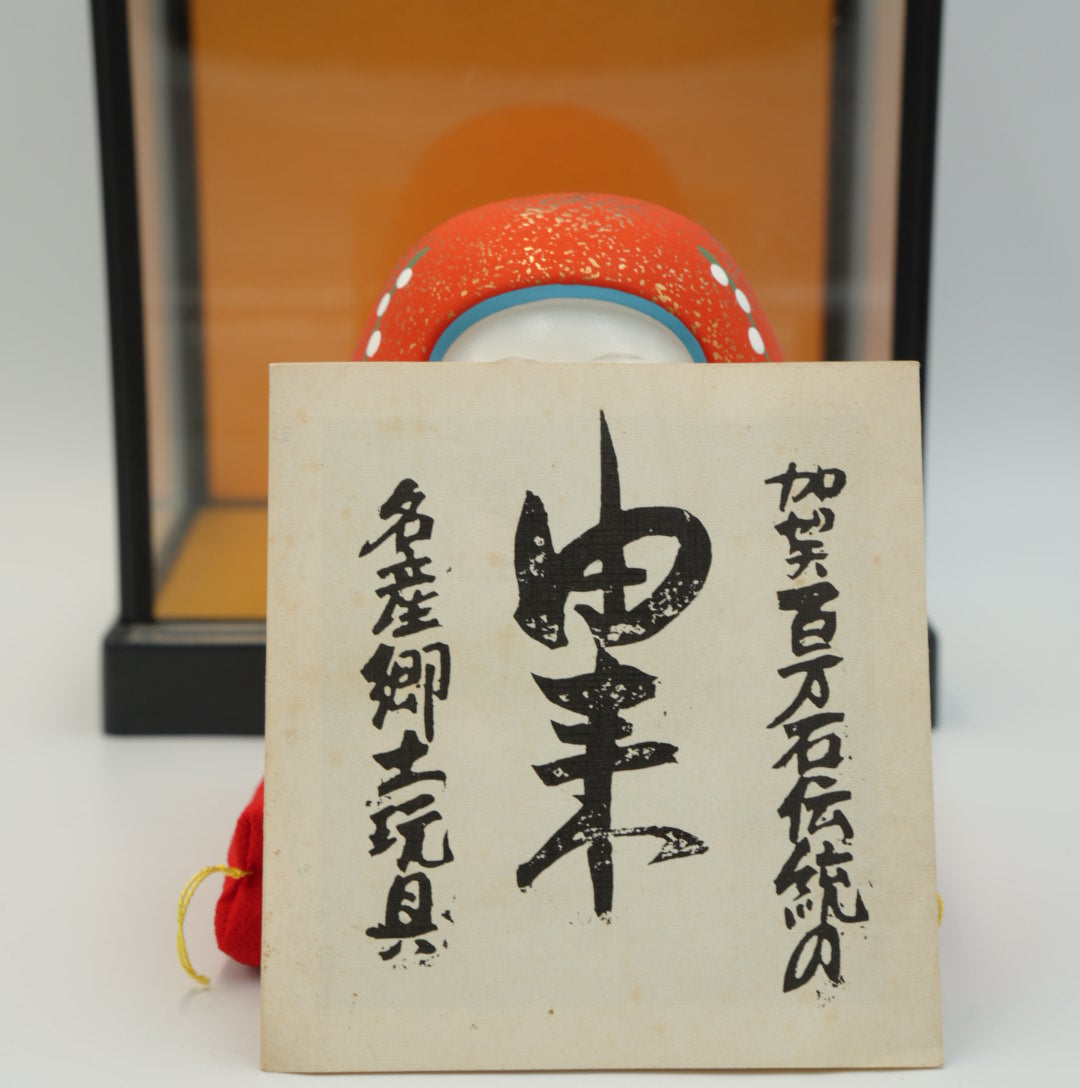 加賀百万石伝統の
由来
名産郷土玩具